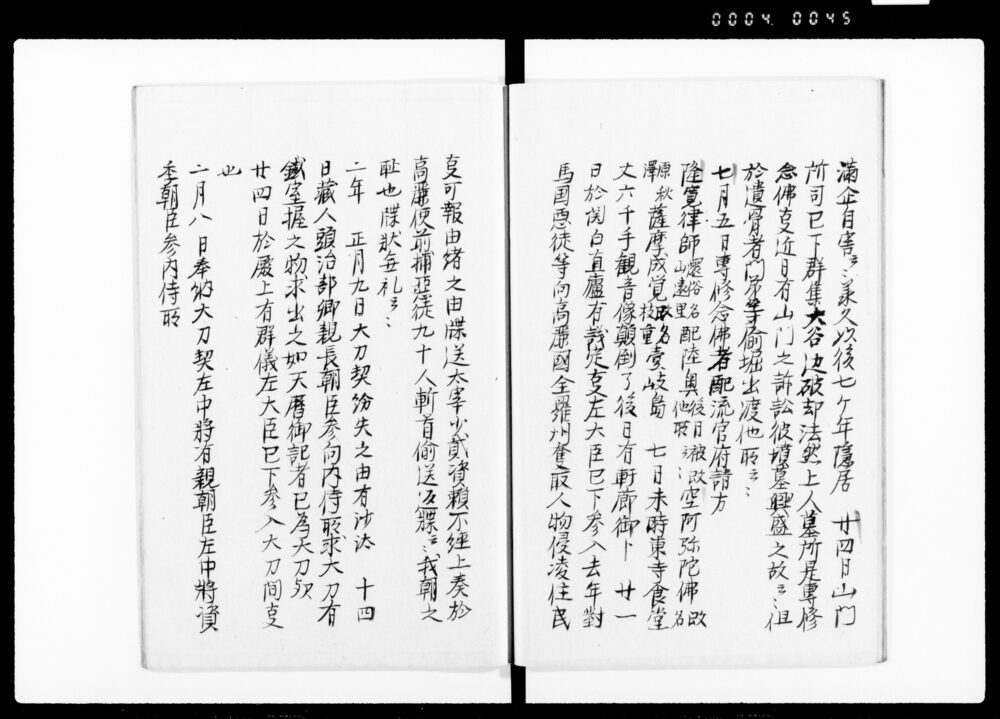 0004 0045
満企自害云々承久以後七ケ年隠居 廿四日山門
所司已下群集大谷辺破却法然上人墓所是専修
念佛叓近日有山門之訴訟彼墳墓興盛之故云々但
於遺骨者門弟等偷堀出渡他所云々
七月五日専修念佛者配流官府請方
隆寛律師還俗名山遠里配陸奥後日被改他所云々空阿弥陀佛改名
原秋澤薩摩成覚改名枝重壹岐島 七日未時東寺食堂
丈六千手観音像顛倒了後日有軒廊御卜 廿一
日於関白直廬有議定叓左大臣已下参入去年對
馬国悪徒等向高麗國全羅州奪取人物侵凌住民
叓可報由緒之由牒送太宰少貳資頼不経上奏於
高麗使前捕悪徒九十人斬首偷送返牒云々我朝之
耻也牒状無礼云々
二年 正月九日大刀契紛失之由有沙汰 十四
日藏人頭治部卿親長朝臣参向内侍所求大刀有
鐵室握之物求出之如天暦御記者已為大刀欤
廿四日於殿上有群儀左大臣已下参入大刀間叓
也
二月八日奉納大刀契左中将有親朝臣左中将資
季朝臣参内侍所